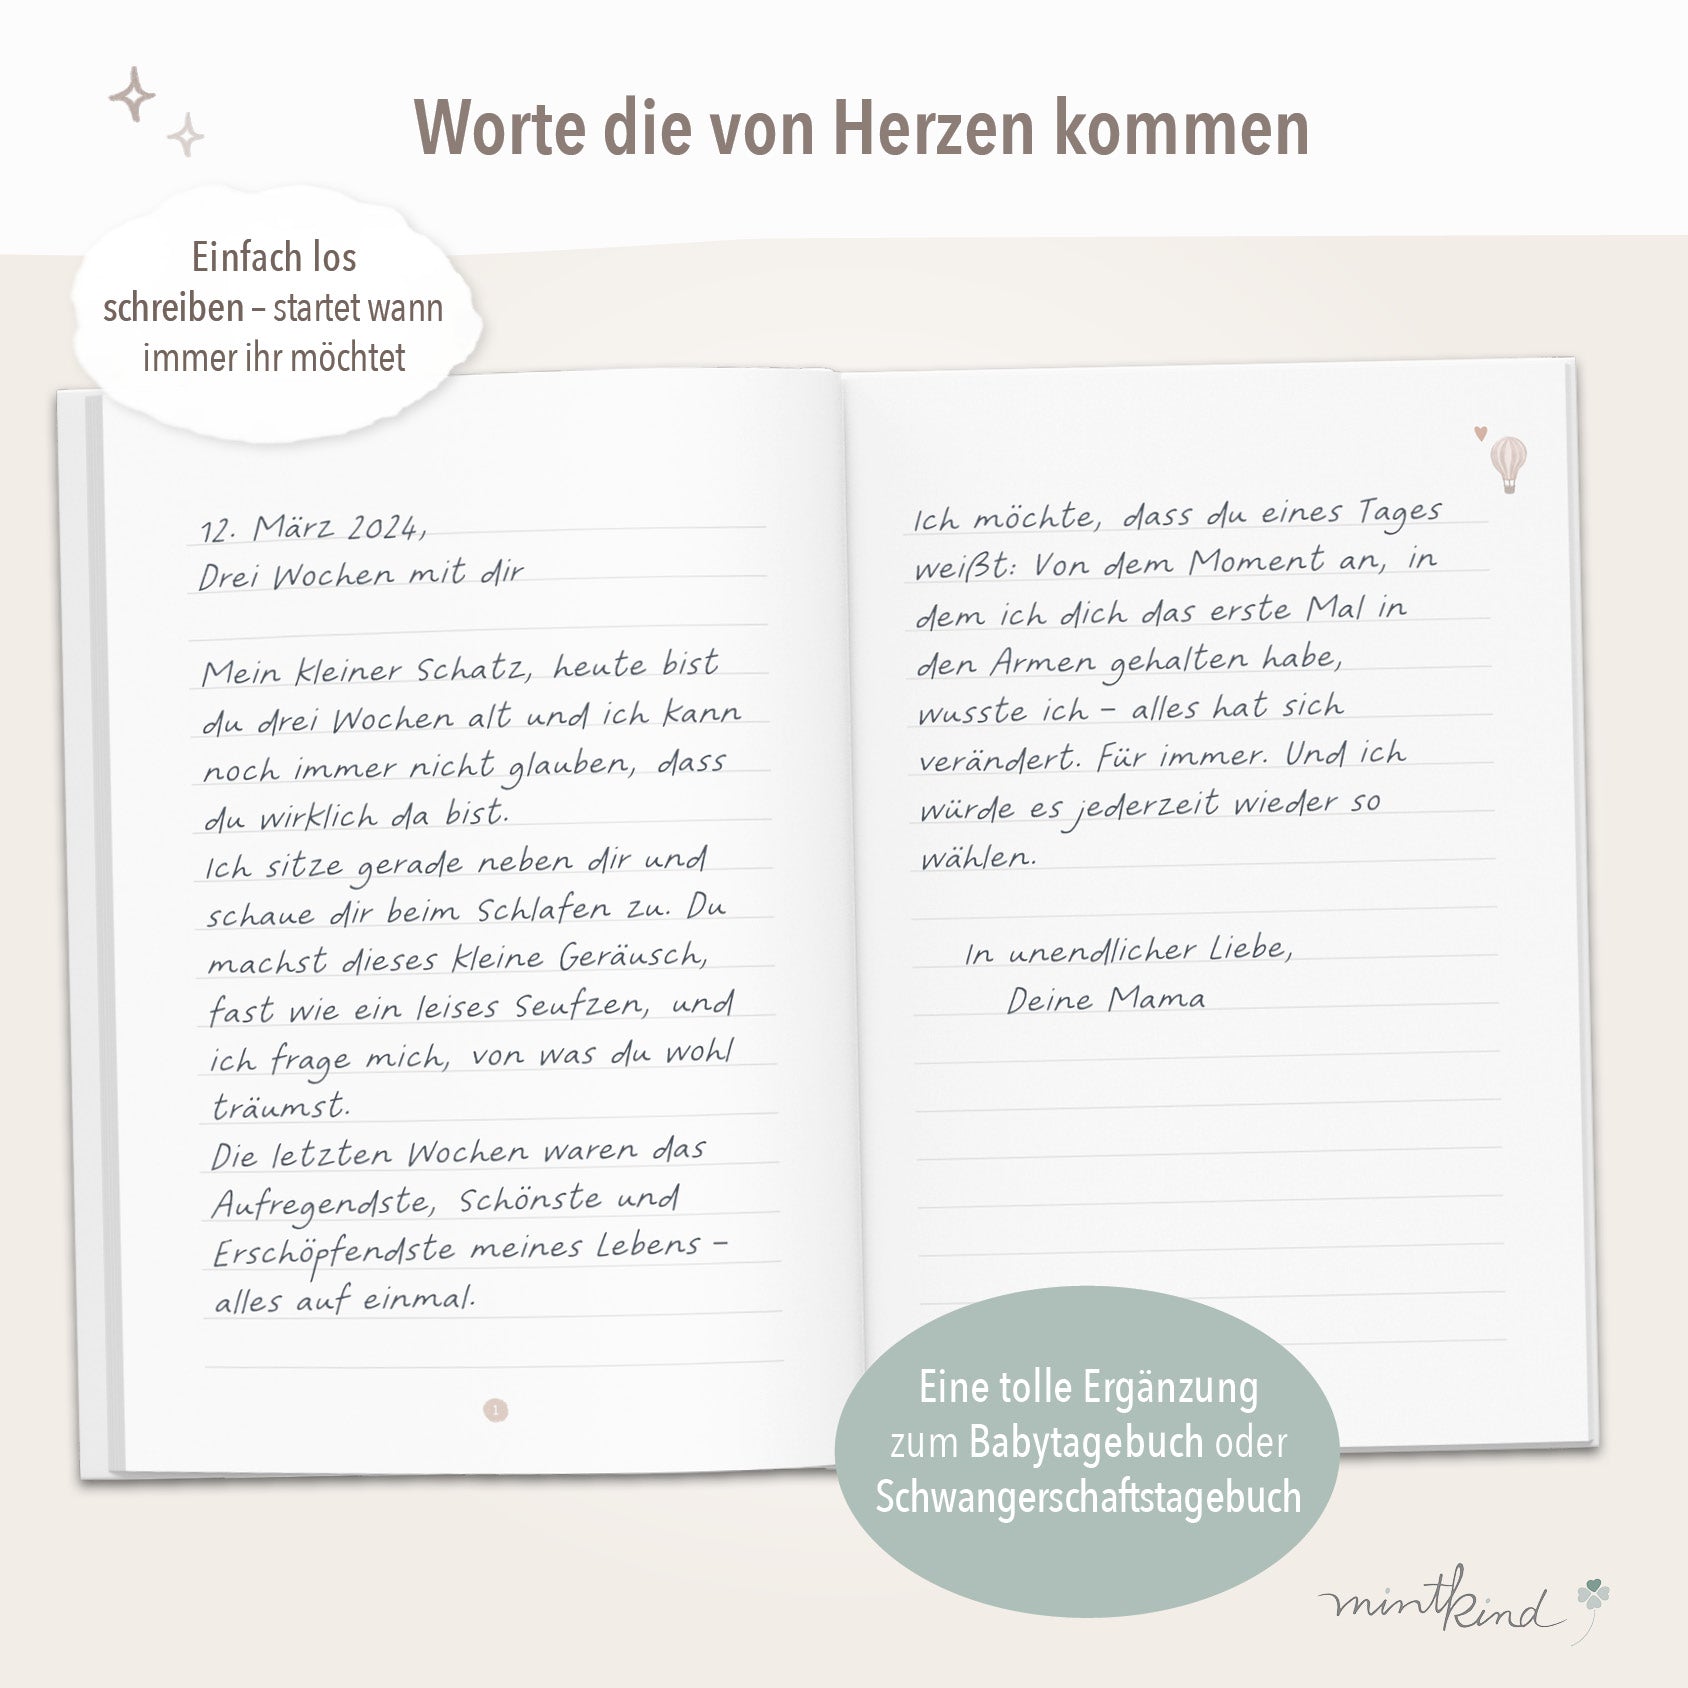 Worte die von Herzen kommen
Einfach los
schreiben – startet wann
immer ihr möchtet
12. März 2024,
Drei Wochen mit dir
Mein kleiner Schatz, heute bist
du drei Wochen alt und ich kann
noch immer nicht glauben, dass
du wirklich da bist.
Ich sitze gerade neben dir und
schaue dir beim Schlafen zu. Du
machst dieses kleine Geräusch,
fast wie ein leises Seufzen, und
ich frage mich, von was du wohl
träumst.
Die letzten Wochen waren das
Aufregendste, Schönste und
Erschöpfendste meines Lebens –
alles auf einmal.
1
Ich möchte, dass du eines Tages
weißt: Von dem Moment an, in
dem ich dich das erste Mal in
den Armen gehalten habe,
wusste ich – alles hat sich
verändert. Für immer. Und ich
würde es jederzeit wieder so
wählen.
In unendlicher Liebe,
Deine Mama
Eine tolle Ergänzung
zum Babytagebuch oder
Schwangerschaftstagebuch
mintkind